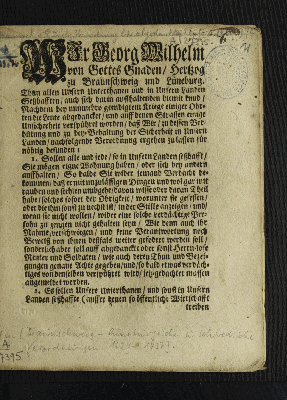 Wir Georg Wilhelm
von Gottes Gnaden / Hertzog
zu Braunschweig und Lüneburg.
Thun allen Unsern Unterthanen und in Unsern Landen
Seßhafften / auch sich darin auffhaltenden hiemit kund /
Nachdem bey nunmehro geendigtem Kriege einiger Ohr-
ten die Leute abgedancket / und auff denen Strassen einige
Unsicherheit verspühret worden / daß Wir / zu dessen Ver-
hütung und zu bey-Behaltung der Sicherheit in Unsern
Landen / nachfolgende Verordnung ergehen zu lassen für
nöhtig befunden :
1. Sollen alle und jede / so in Unsern Landen seßhafft /
Sie mögen eigne Wohnung haben / oder sich bey andern
auffhalten / So balde Sie wider jemand Verdacht be-
kommen / daß er mit unzuläßigen Dingen und wol gar mit
rauben und stehlen umbgehe / davon wisse oder daran Theil
habe / solches sofort der Obrigkeit / worunter sie gesessen /
oder die ihn sonst zu nechst ist / in der Stille anzeigen / und
wenn sie nicht wollen / wider eine solche verdächtige Per-
sohn zu zeugen nicht gehalten seyn / Wie denn auch ihr
Nahme verschwiegen / und keine Verantwortung noch
Beweiß von ihnen desfals weiter gefodert werden soll /
sonderlich aber soll auff abgedanckte oder sonst Herrn-lose
Reuter und Soldaten / wie auch deren Thun und Bezei-
gungen genaue Achte gegeben / und / so bald etwas verdäch-
tiges von denselben verspühret wird / setz-gedachter massen
angemeldet werden.
2. Es sollen Unsere Unterthanen / und sonst in Unsern
Landen seßhaffte / ausser denen so öffentliche Wirtschafft
treiben